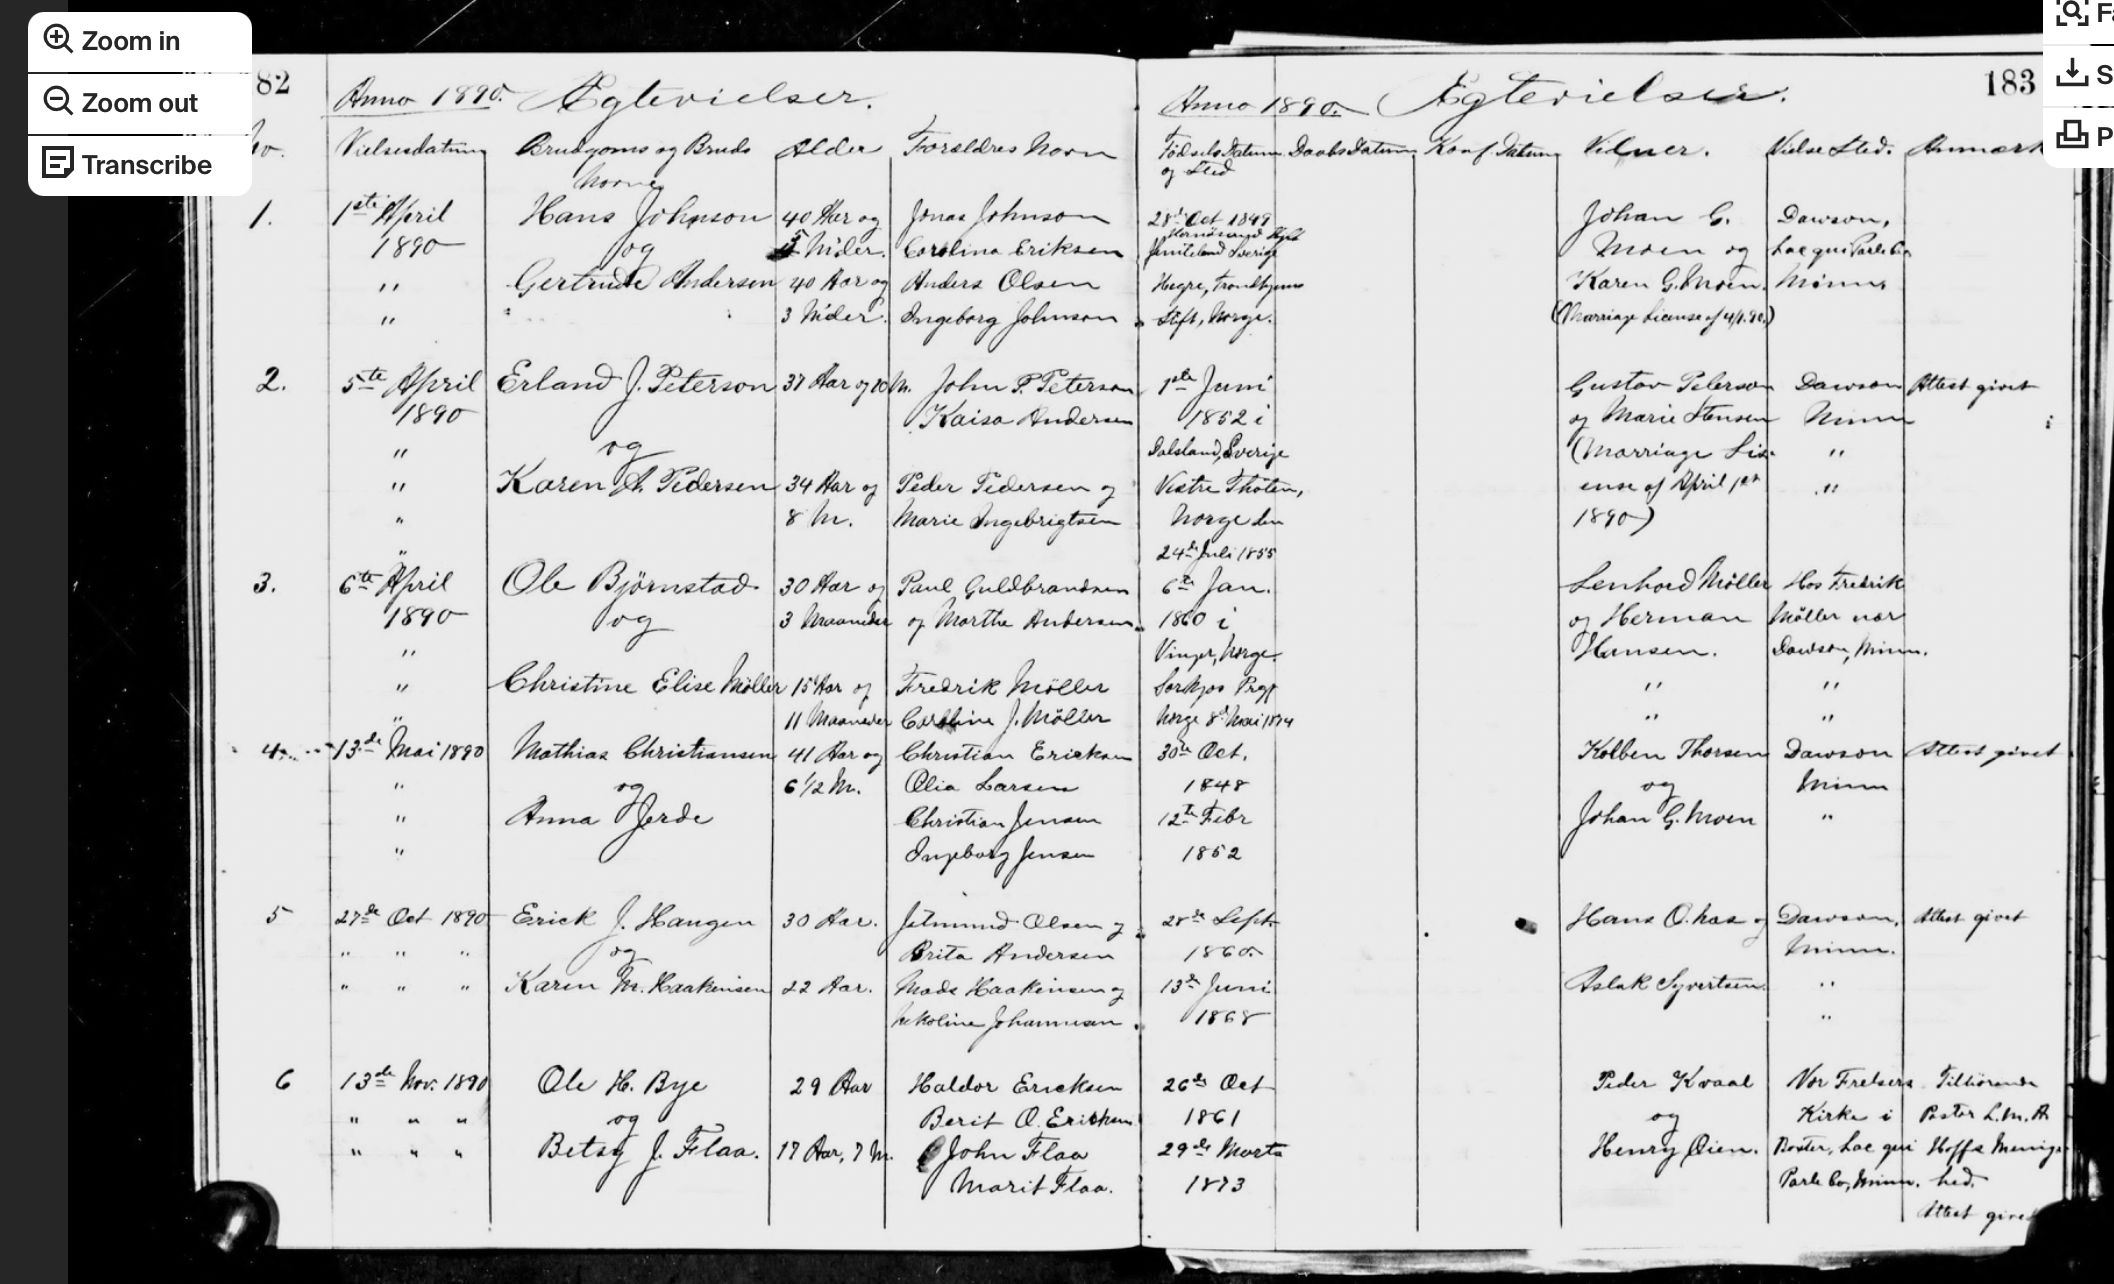 Zoom in
Zoom out
Transcribe
82
Anno 1890. Ægtevielser.
No. Vielsesdatum Brudgoms og Bruds Navne Alder Forældres Navn
1. 1ste April 1890 Hans Johnson 40 Aar og 5 M'der. Jonas Johnson
og Carolina Eriksen
" Gertrude Andersen 40 Aar og Anders Olsen
" 3 M'der. Ingeborg Johnson
2. 5te April Erland J. Peterson 37 Aar og 10 M. John P. Peterson
1890 Kaisa Andersen
" og
" Karen A. Pedersen 34 Aar og Peder Pedersen og
" 8 M. Marie Ingebrigtsen
"
3. 6te April Ole Bjørnstad 30 Aar og Paul Guldbrandsen
1890 og 3 Maaneder og Marthe Andersen
"
" Christine Elise Møller 15 Aar og Fredrik Møller
" 11 Maaneder J. Møller
4. 13de Mai 1890 Mathias Christiansen 41 Aar og Christian Ericksen
" og 6 1/2 M. Olia Larsen
" Anna Gjerde Christian Jensen
" Ingeborg Jensen
5 27de Oct 1890 Erick J. Haugen 30 Aar. Olsen og
" " " og Brita Andersen
" " " Karen M. Haakensen 22 Aar. Mads Haakensen og
Johannesen
6 13de Nov. 1890 Ole H. Bye 29 Aar Haldor Ericksen
" " " og Berit O. Ericksen
" " " Betsy J. Flaa. 17 Aar, 7 M. John Flaa
Marit Flaa.
Anno 1890. Ægtevielser. 183
Fødsels Datum og Sted Daabs Datum Konf Datum Vidner. Vielse Sted. Anmærk
28de Oct 1849 Johan G. Dawson,
Sverige Moen og Lac qui Parle Co
Hegre, Trondhjems Karen G. Moen. Minn.
Stift, Norge. (Marriage License of 4/1.90.)
1ste Juni Gustav Peterson Dawson Attest givet
1852 i og Marie Stensen Minn
Dalsland, Sverige (Marriage Lis- "
Vestre Thoten, ense of April 1st "
Norge den 1890)
24de Juli 1855
6te Jan. Lenhord Møller Hos Fredrik
1860 i og Herman Møller nær
Vinger, Norge. Hansen. Dawson, Minn.
Prgj " "
Norge 8de Mai 1874 " "
30te Oct. Kolben Thorsen Dawson Attest givet
1848 og Minn
12te Febr Johan G. Moen "
1852
28de Sept. Hans O. og Dawson, Attest givet
1860. Minn.
13de Juni Aslak Syvertsen. "
1868 "
26de Oct Peder Kvaal Vor Frelsers Tilhørende
1861 og Kirke i Pastor L.M.A.
29de Marts Henry Øien. Lac qui Hoffs Menig-
1873 Parle Co, Minn. hed.
Attest givet